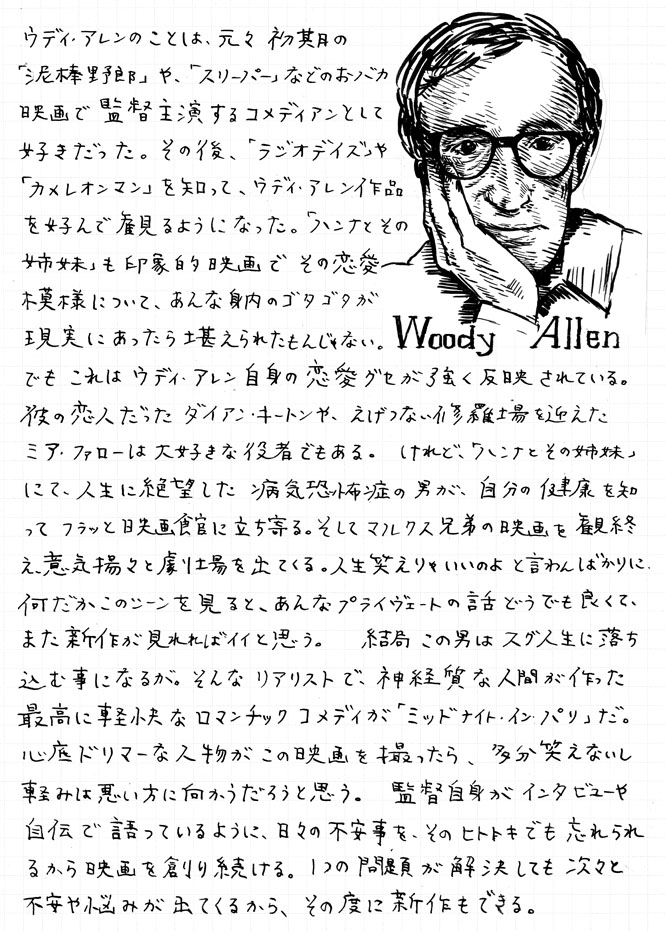 ウディ・アレンのことは、元々初期の
「泥棒野郎」や、「スリーパー」などのおバカ
映画で監督主演するコメディアンとして
好きだった。その後、「ラジオデイズ」や
「カメレオンマン」を知って、ウディ・アレン作品
を好んで観るようになった。「ハンナとその
姉妹」も印象的映画でその恋愛
模様について、あんな身内のゴタゴタが
現実にあったら堪えられたもんじゃない。
Woody Allen
でもこれはウディ・アレン自身の恋愛グセが強く反映されている。
彼の恋人だったダイアン・キートンや、えげつない修羅場を迎えた
ミア・ファローは大好きな役者でもある。 けれど、「ハンナとその姉妹」
にて、人生に絶望した病気恐怖症の男が、自分の健康を知
ってフラッと映画館に立ち寄る。そしてマルクス兄弟の映画を観終
え、意気揚々と劇場を出てくる。人生笑えりゃいいのよと言わんばかりに。
何だかこのシーンを見ると、あんなプライヴェートの話どうでも良くて、
また新作が見れればイイと思う。 結局この男はスグ人生に落ち
込む事になるが。そんなリアリストで、神経質な人間が作った
最高に軽快なロマンチックコメディが「ミッドナイト・イン・パリ」だ。
心底ドリマーな人物がこの映画を撮ったら、多分笑えないし
軽みは悪い方に向かうだろうと思う。 監督自身がインタビューや
自伝で語っているように、日々の不安事を、そのヒトトキでも忘れられ
るから映画を創り続ける。1つの問題が解決しても次々と
不安や悩みが出てくるから、その度に新作もできる。